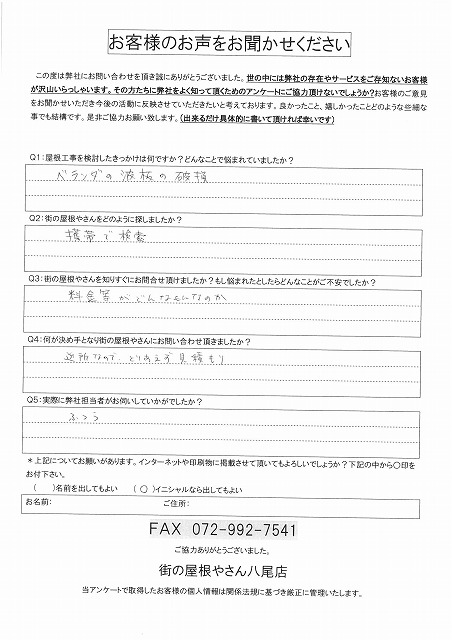 お客様のお声をお聞かせください
この度は弊社にお問い合わせを頂き誠にありがとうございました。世の中には弊社の存在やサービスをご存知ないお客様
が沢山いらっしゃいます。その方たちに弊社をよく知って頂くためのアンケートにご協力頂けないでしょうか?お客様のご意見
をお聞かせいただき今後の活動に反映させていただきたいと考えております。良かったこと、嬉しかったことどのような些細な
事でも結構です。是非ご協力お願い致します。(出来るだけ具体的に書いて頂ければ幸いです)
Q1:屋根工事を検討したきっかけは何ですか?どんなことで悩まれていましたか?
ベランダの波板の破損
Q2:街の屋根やさんをどのように探しましたか?
携帯で検索
Q3:街の屋根やさんを知りすぐにお問合せ頂けましたか?もし悩まれたとしたらどんなことがご不安でしたか?
料金等がどんなもになのか
Q4:何が決め手となり街の屋根やさんにお問い合わせ頂きましたか?
近所なので、とりあえず見積もり
Q5:実際に弊社担当者がお伺いしていかがでしたか?
ふつう
*上記についてお願いがあります。インターネットや印刷物に掲載させて頂いてもよろしいでしょうか?下記の中から○印を
お付下さい。
( )名前を出してもよい (○)イニシャルなら出してもよい
お名前: ご住所:
FAX 072-992-7541
ご協力ありがとうございました。
街の屋根やさん八尾店
当アンケートで取得したお客様の個人情報は関係法規に基づき厳正に管理いたします。